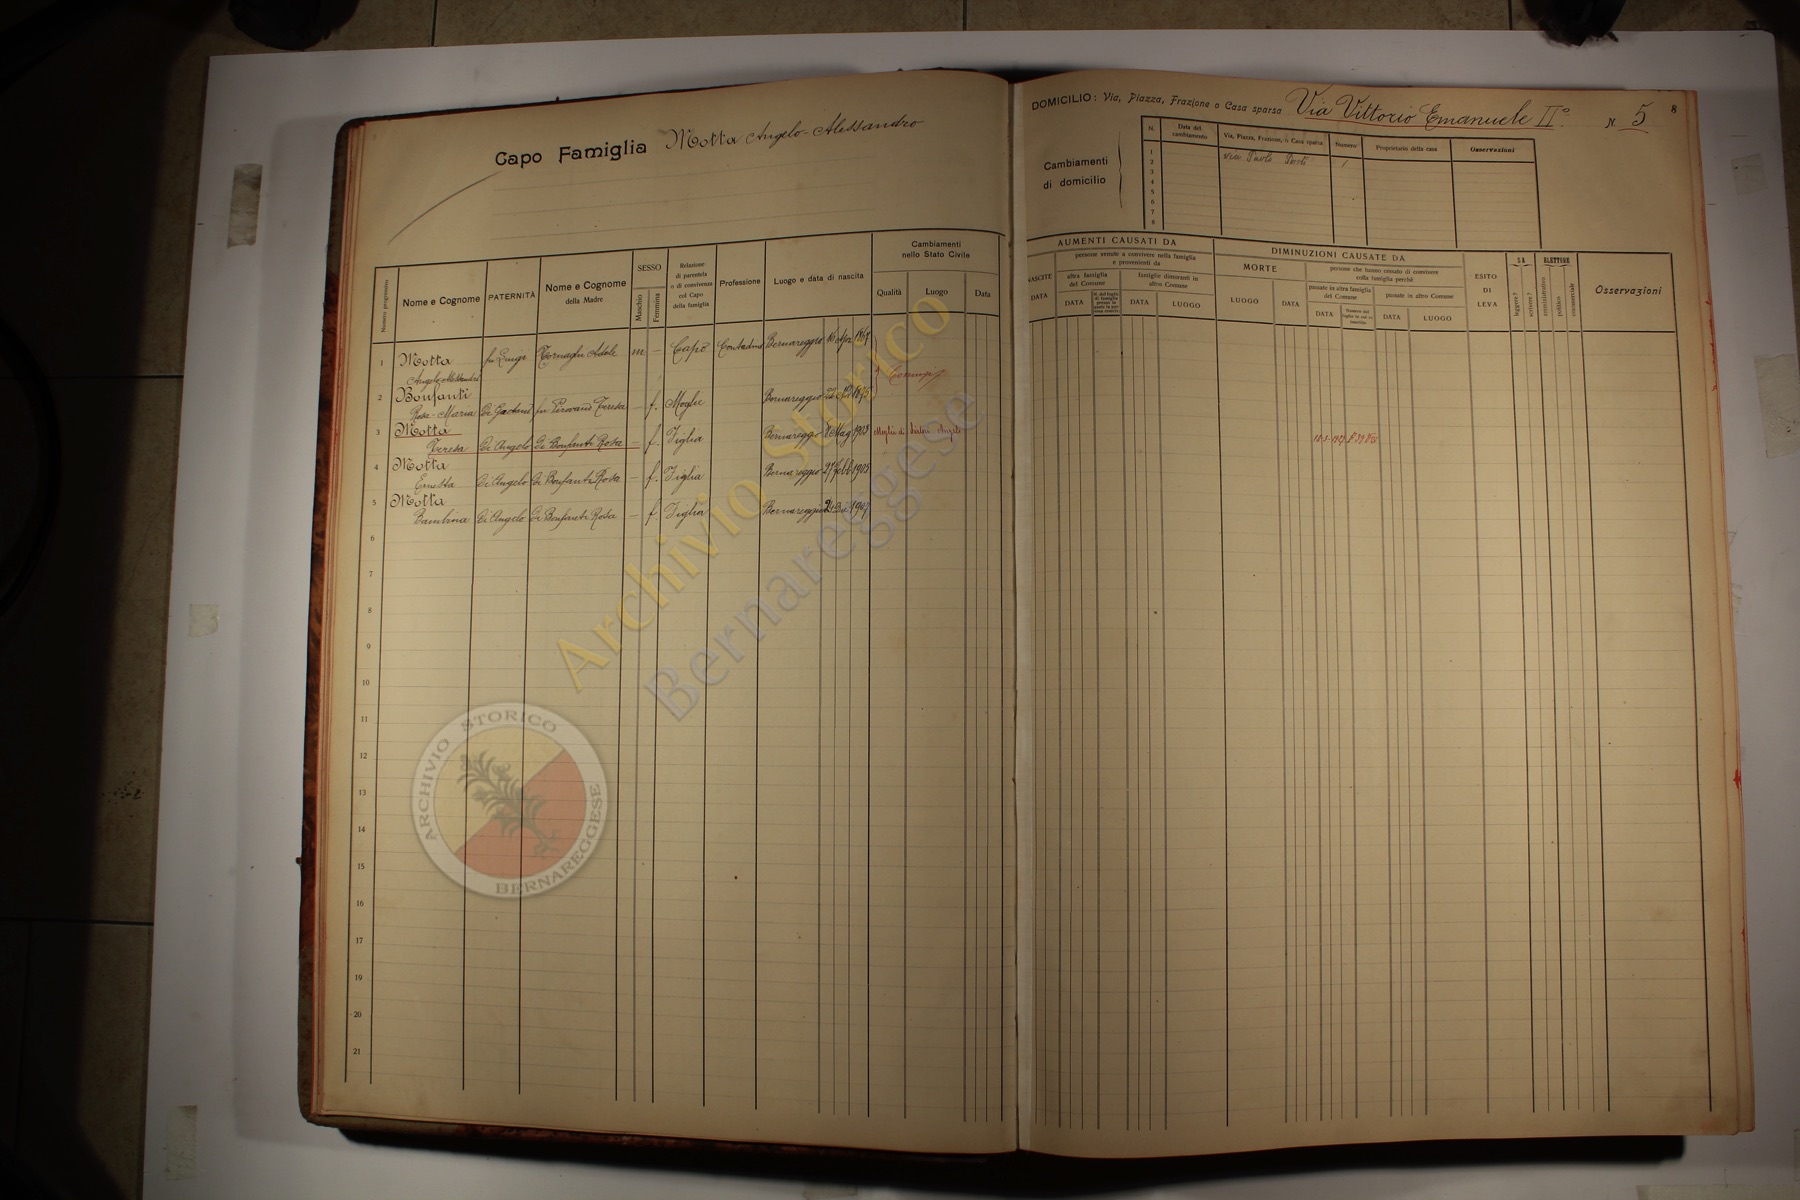 Capo Famiglia Motta Angelo-Alessandro
Numero progressivo
Nome e Cognome
PATERNITÀ
Nome e Cognome
della Madre
SESSO
Maschio
Femmina
Relazione
di parentela
o di convivenza
col Capo
della famiglia
Professione
Luogo e data di nascita
Cambiamenti
nello Stato Civile
Qualità
Luogo
Data
1 Motta fu Luigi Tornaghi Adele m. — Capo Contadino Bernareggio 1867
Angelo Alessandro
2 Bonfanti
Rosa-Maria di Gaetano fu Teresa — f. Moglie Bernareggio 1875
Coniugi
3 Motta
Teresa di Angelo di Bonfanti Rosa — f. Figlia Bernareggio 8 Mag 1903 Moglie di Angelo
4 Motta
Ernesta di Angelo di Bonfanti Rosa — f. Figlia Bernareggio 27 Febb 1905
5 Motta
Bambina di Angelo di Bonfanti Rosa — f. Figlia Bernareggio 1907
6
7
8
9
10
11
12
13
14
15
16
17
18
19
20
21
8
DOMICILIO: Via, Piazza, Frazione o Casa sparsa Via Vittorio Emanuele II° N 5
Cambiamenti
di domicilio
N.
Data del
cambiamento
Via, Piazza, Frazione, o Casa sparsa
Numero
Proprietario della casa
Osservazioni
1
2 via 1
3
4
5
6
7
8
AUMENTI CAUSATI DA
NASCITE
DATA
persone venute a convivere nella famiglia
e provenienti da
altra famiglia
del Comune
DATA
famiglie dimoranti in
altro Comune
DATA
LUOGO
DIMINUZIONI CAUSATE DA
MORTE
LUOGO
DATA
persone che hanno cessato di convivere
colla famiglia perchè
passate in altra famiglia
del Comune
DATA
passate in altro Comune
DATA
LUOGO
ESITO
DI
LEVA
SA
leggere?
scrivere?
ELETTORE
amministrativo
politico
commerciale
Osservazioni
ARCHIVIO STORICO
BERNAREGGESE
Archivio Storico
Bernareggese